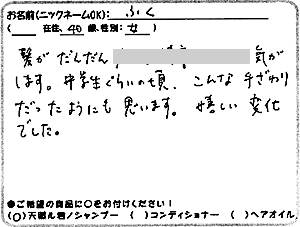 お名前(ニックネームOK): ふく
( 在住、40 歳、性別: 女 )
髪がだんだん 気が
します。中学生ぐらいの頃、こんな手ざわり
だったようにも思います。嬉しい変化
でした。
●ご希望の商品に○をお付けください!
(○)天使ル君ノシャンプー ( )コンディショナー ( )ヘアオイル